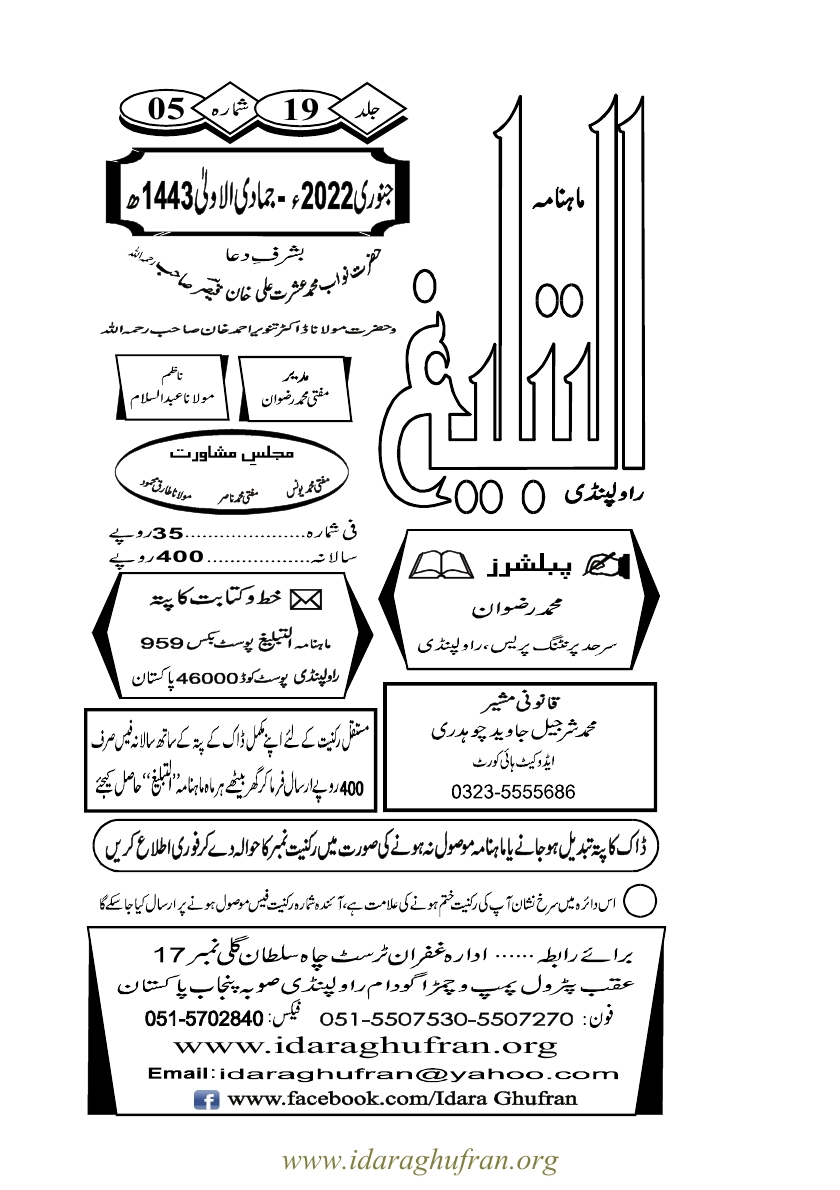 ماہنامہ
التبلیغ
راولپنڈی
جلد 19 شمارہ 05
جنوری 2022ء - جمادی الاولیٰ 1443ھ
بشرفِ دعا
حضرت نواب محمد عشرت علی خان قیصر صاحب رحمہ اللہ
و حضرت مولانا ڈاکٹر تنویر احمد خان صاحب رحمہ اللہ
مدیر
مفتی محمد رضوان
ناظم
مولانا عبدالسلام
مجلسِ مشاورت
مفتی محمد یونس مفتی محمد ناصر مولانا طارق محمود
فی شمارہ.....................35 روپے
سالانہ..................400 روپے
پبلشرز
محمد رضوان
سرحد پرنٹنگ پریس، راولپنڈی
خط و کتابت کا پتہ
ماہنامہ التبلیغ پوسٹ بکس 959
راولپنڈی پوسٹ کوڈ 46000 پاکستان
قانونی مشیر
محمد شرجیل جاوید چوہدری
ایڈوکیٹ ہائی کورٹ
0323-5555686
مستقل رکنیت کے لئے اپنے مکمل ڈاک کے پتہ کے ساتھ سالانہ فیس صرف
400 روپے ارسال فرما کر گھر بیٹھے ہر ماہ ماہنامہ ”التبلیغ“ حاصل کیجئے
ڈاک کا پتہ تبدیل ہو جانے یا ماہنامہ موصول نہ ہونے کی صورت میں رکنیت نمبر کا حوالہ دے کر فوری اطلاع کریں
اس دائرہ میں سرخ نشان آپ کی رکنیت ختم ہونے کی علامت ہے، آئندہ شمارہ رکنیت فیس موصول ہونے پر ارسال کیا جا سکے گا
برائے رابطہ ...... ادارہ غفران ٹرسٹ چاہ سلطان گلی نمبر 17
عقب پٹرول پمپ و چمڑا گودام راولپنڈی صوبہ پنجاب پاکستان
فون: 051-5507530-5507270 فیکس: 051-5702840
www.idaraghufran.org
Email:idaraghufran@yahoo.com
www.facebook.com/Idara Ghufran
www.idaraghufran.org